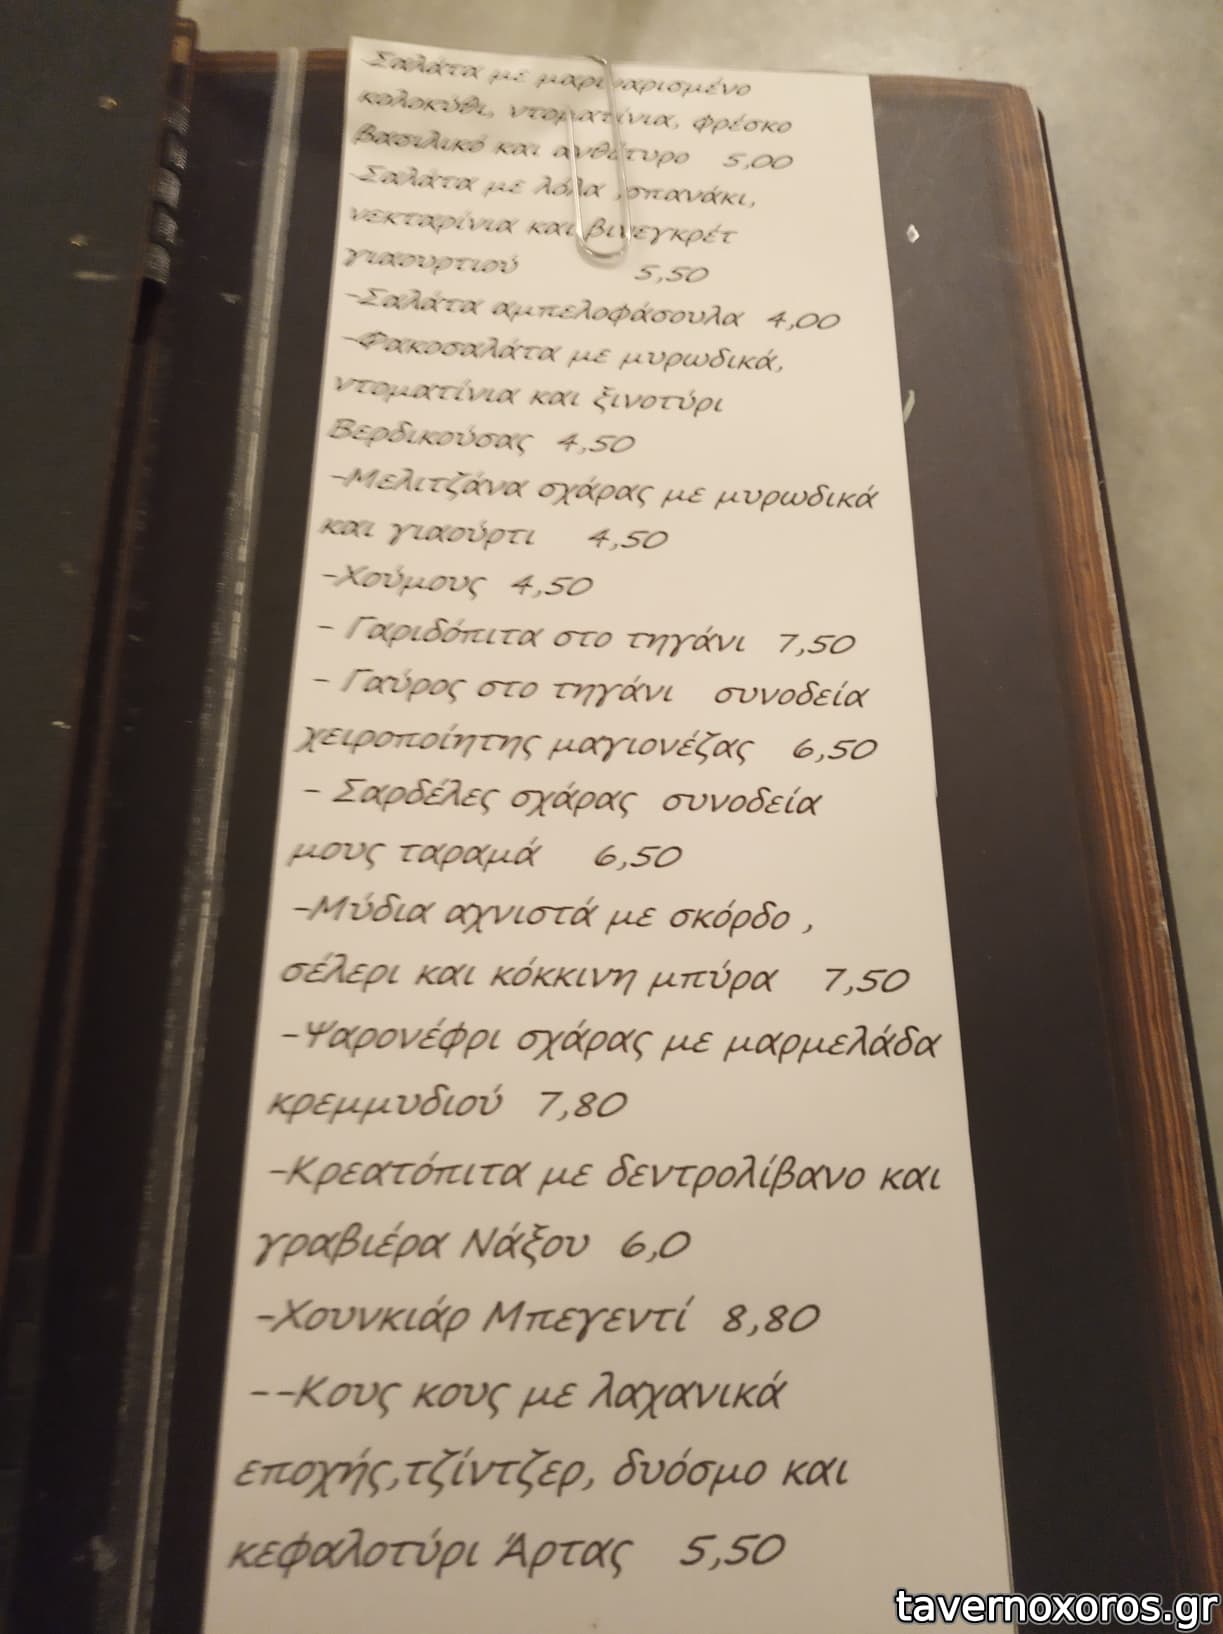 -Σαλάτα με μαριναρισμένο
κολοκύθι, ντοματίνια, φρέσκο
βασιλικό και ανθότυρο 5,00
-Σαλάτα με λόλα ,σπανάκι,
νεκταρίνια και βινεγκρέτ
γιαουρτιού 5,50
-Σαλάτα αμπελοφάσουλα 4,00
-Φακοσαλάτα με μυρωδικά,
ντοματίνια και ξινοτύρι
Βερδικούσας 4,50
-Μελιτζάνα σχάρας με μυρωδικά
και γιαούρτι 4,50
-Χούμους 4,50
- Γαριδόπιτα στο τηγάνι 7,50
- Γαύρος στο τηγάνι συνοδεία
χειροποίητης μαγιονέζας 6,50
- Σαρδέλες σχάρας συνοδεία
μους ταραμά 6,50
-Μύδια αχνιστά με σκόρδο ,
σέλερι και κόκκινη μπύρα 7,50
-Ψαρονέφρι σχάρας με μαρμελάδα
κρεμμυδιού 7,80
-Κρεατόπιτα με δεντρολίβανο και
γραβιέρα Νάξου 6,0
-Χουνκιάρ Μπεγεντί 8,80
--Κους κους με λαχανικά
εποχής,τζίντζερ, δυόσμο και
κεφαλοτύρι Άρτας 5,50
tavernoxoros.gr